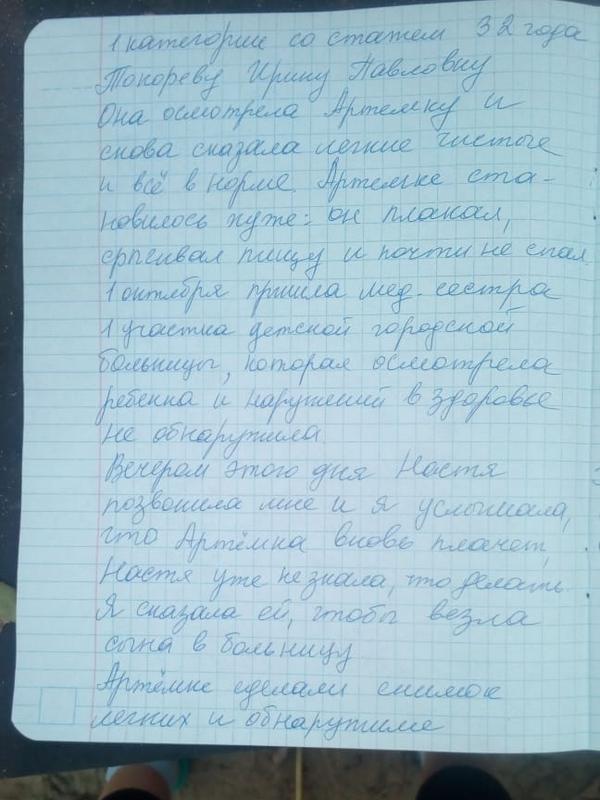 1 категории со стажем 32 года
Токореву Ирину Павловну
Она осмотрела Артемку и
снова сказала легкие чистые
и всё в норме. Артемке ста-
новилось хуже: он плакал,
срыгивал пищу и почти не спал.
1 октября пришла мед. сестра
1 участка детской городской
больницы, которая осмотрела
ребенка и нарушений в здоровье
не обнаружила.
Вечером этого дня Настя
позвонила мне и я услышала,
что Артёмка вновь плачет,
Настя уже не знала, что делать.
Я сказала ей, чтобы везла
сына в больницу
Артёмке сделали снимок
легких и обнаружили